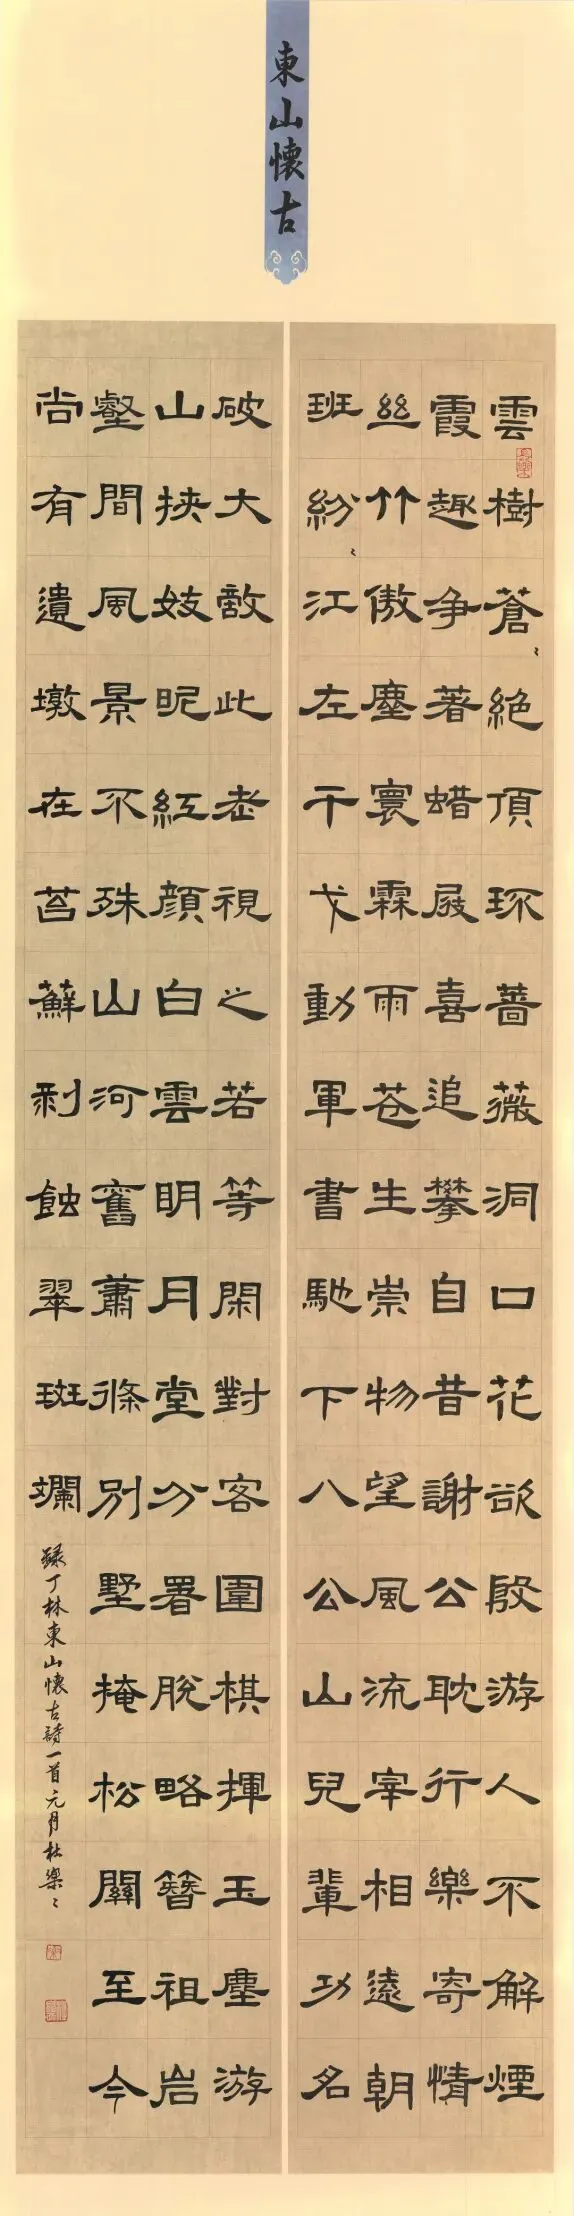 東山懷古
雲樹蒼〻絕頂环薔薇洞口花欲殷游人不解煙
霞趣争著蜡屐喜追攀自昔謝公耽行樂寄情
絲竹傲塵寰霖雨苍生崇物望風流宰相遠朝
班紛〻江左干戈動軍書馳下八公山兒輩功名
破大敵此老視之若等閑對客圍棋揮玉塵游
山挾妓昵紅顏白雲明月堂分署脫略簪祖岩
壑間風景不殊山河舊蕭條別墅掩松關至今
尚有遺墩在苔蘚剥蝕翠斑斕
録丁林東山懷古詩一首元月杜樂〻